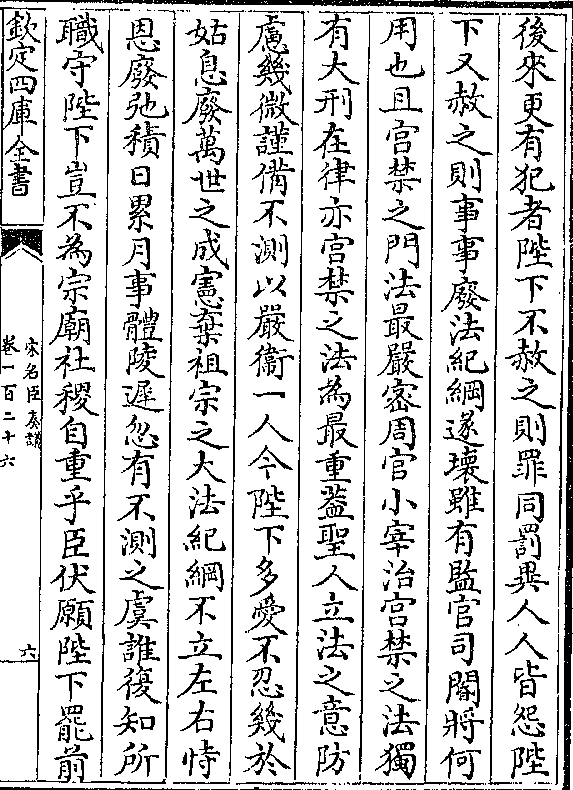 後來更有犯者陛下不赦之則罪同罰異人人皆怨陛
下又赦之則事事廢法紀綱遂壞雖有監官司閽將何
用也且宫禁之門法最嚴密周官小宰治宫禁之法獨
有大刑在律亦宫禁之法為最重葢聖人立法之意防
慮幾微謹備不測以嚴衞一人今陛下多愛不忍幾於
姑息廢萬世之成憲棄祖宗之大法紀綱不立左右恃
恩廢弛積日累月事體陵遲忽有不測之虞誰復知所
職守陛下豈不為宗廟社稷自重乎臣伏願陛下罷前
欽定四庫全書
宋名臣奏議
卷一百二十六
六